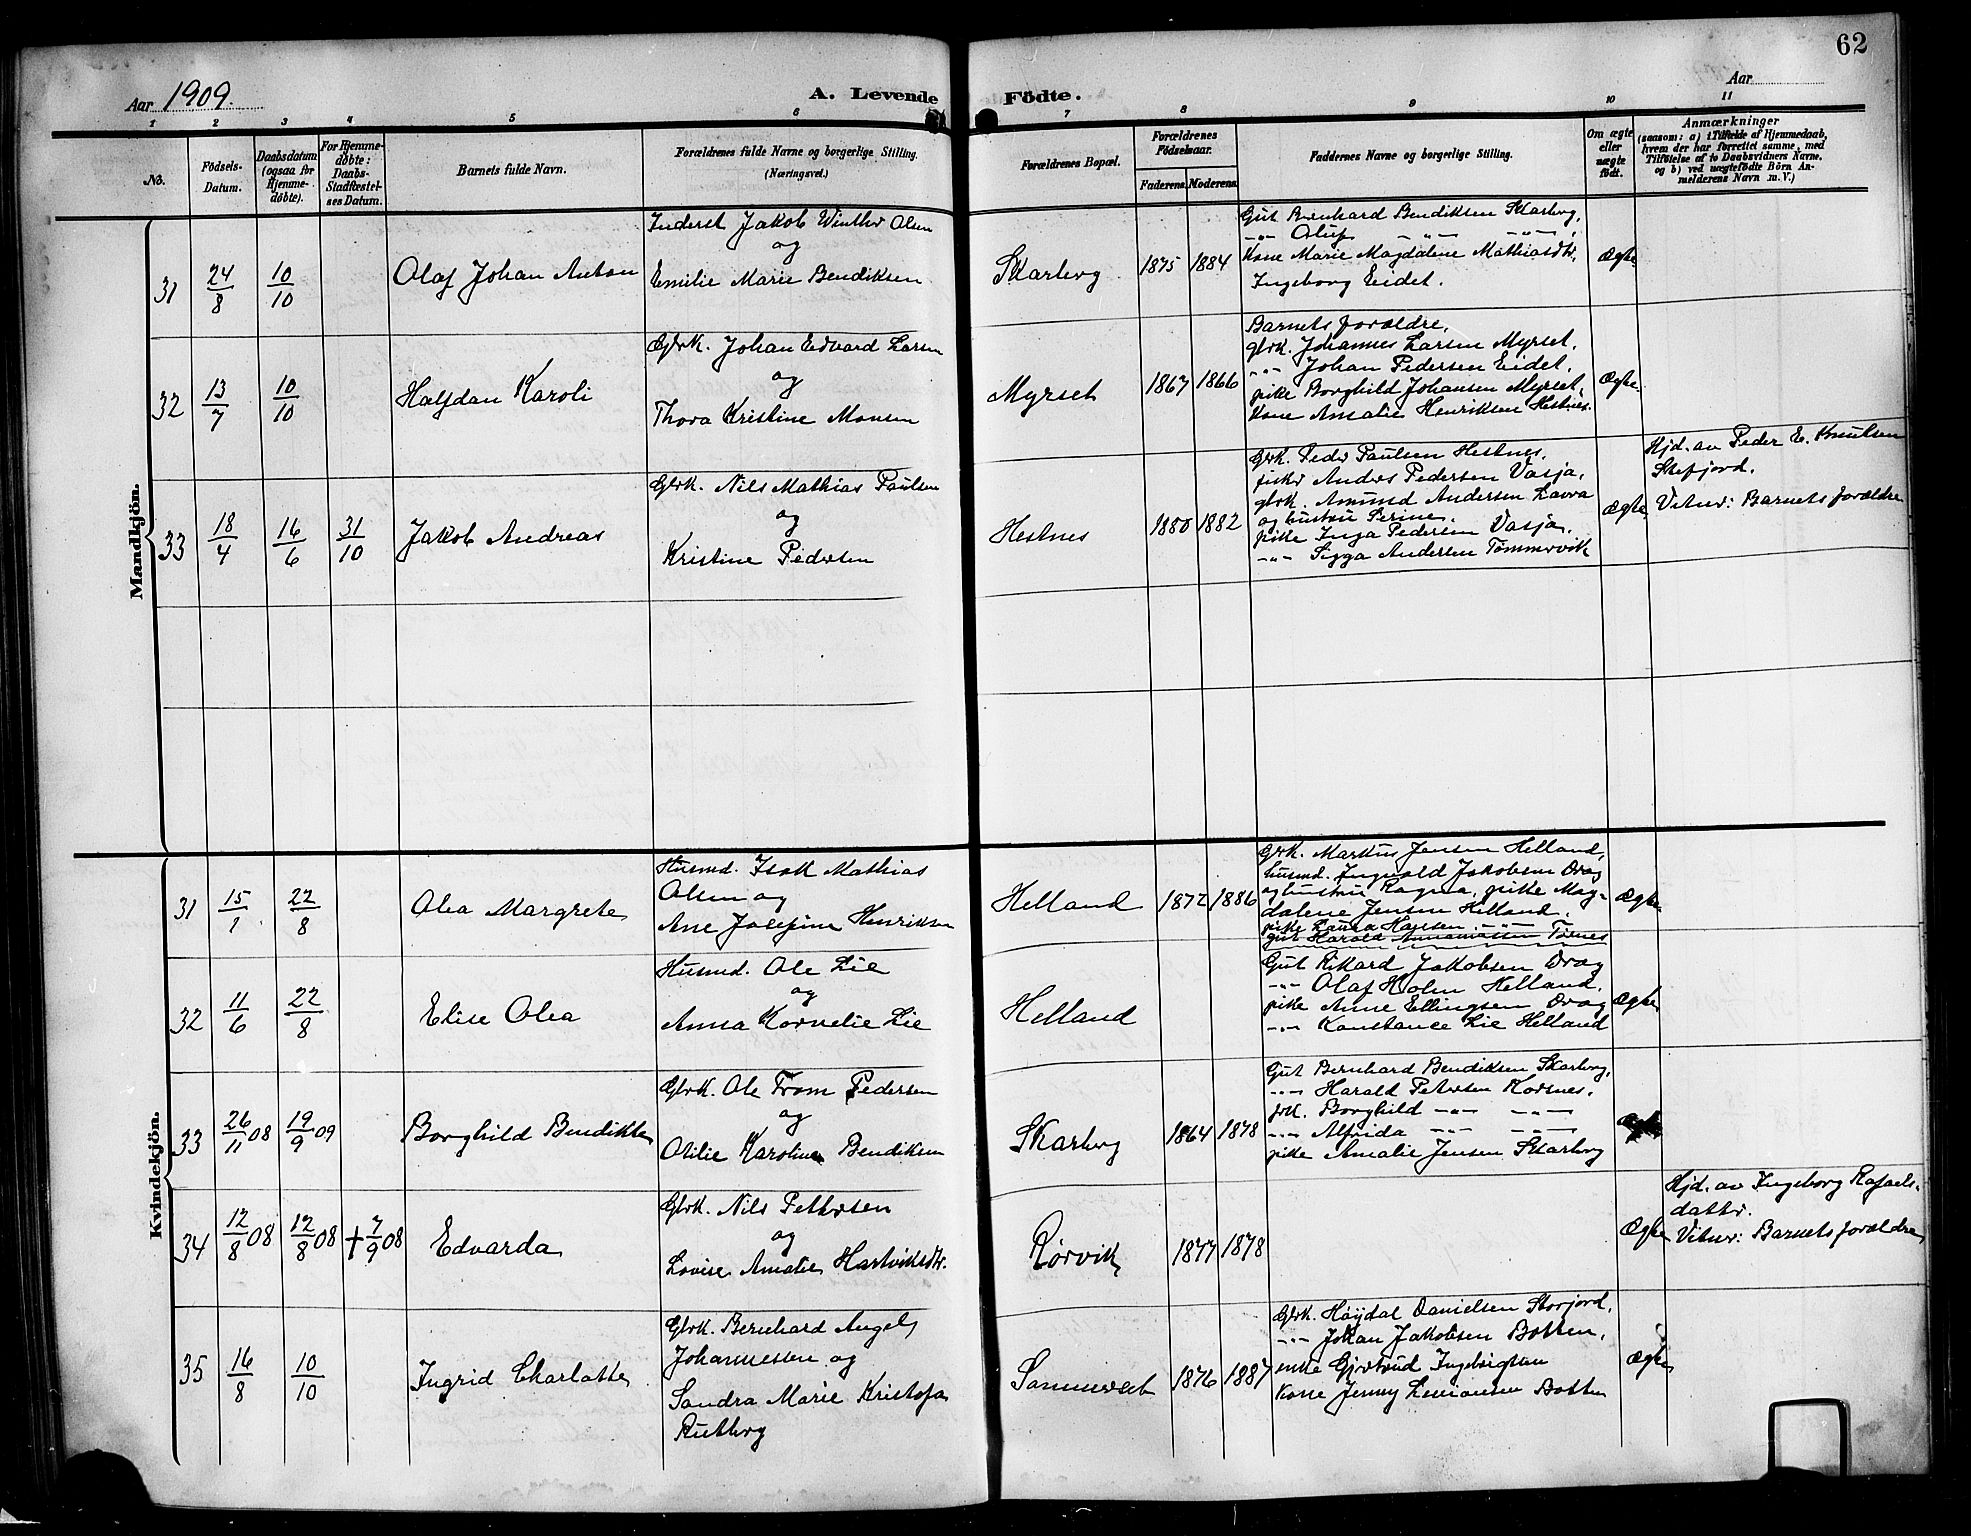 62
Aar 1909.
A. Levende Födte.
Aar
1 2 3 4 5 6 7 8 9 10 11
No.
Födsels-Datum.
Daabsdatum (ogsaa for Hjemme-døbte).
For Hjemme-døbte: Daabs-Stadfæstel-ses Datum.
Barnets fulde Navn.
Forældrenes fulde Navne og borgerlige Stilling.
(Næringsvei.)
Forældrenes Bopæl.
Forældrenes Födselsaar.
Faderens. Moderens.
Faddernes Navne og borgerlige Stilling.
Om ægte eller uægte født.
Anmærkninger
(saasom: a) i Tilfælde af Hjemmedaab,
hvem der har forrettet samme, med
Tilföielse af to Daabsvidners Navne,
og b) ved uægtefödte Börn An-
melderens Navn m. V.)
Mandkjön.
31 24/8 10/10 Olaf Johan Anton
Inderst Jakob Winther Olsen
og
Emilie Marie Bendiksen
Skarberg 1875 1884
Gut Bernhard Bendiksen Skarberg,
-"- Oluf -"- -"-,
Kone Marie Magdalene Mathiasdtr,
Ingeborg Eidet.
Ægte
32 13/7 10/10 Halfdan Karoli
Gbrk. Johan Edvard Larsen
og
Thora Kristine Monsen
Myrset 1867 1866
Barnets forældre,
gbrk. Johannes Larsen Myrset,
-"- Johan Pedersen Eidet,
pike Borghild Johansen Myrset,
Kone Amalie Henriksen Hestnes.
Ægte
33 18/4 16/6 31/10 Jakob Andreas
Gbrk. Nils Mathias Paulsen
og
Kristine Pedersen
Hestnes 1880 1882
Gbrk. Peder Paulsen Hestnes,
fisker Anders Pedersen Vasja,
gbrk. Amund Andersen Lavra
og hustru Perine,
pike Inga Pedersen Vasja,
-"- Sigga Andersen Tømmervik
Ægte
Hjd. av Peder E. Knutsen
Stefjord.
Vitner: Barnets forældre
Kvindekjön.
31 15/1 22/8 Olea Margrete
Husmd. Isak Mathias
Olsen og
Ane Josefine Henriksen
Helland 1872 1886
Gbrk. Markus Jensen Helland,
husmd. Ingvald Jakobsen Drag
og hustru Ragna, pike Mag-
dalene Jensen Helland,
pike Laura Hansen -"-
gut Harald Tørnes
Ægte
32 11/6 22/8 Elise Olea
Husmd. Ole Lie
og
Anna Kornelie Lie
Helland
Gut Rikard Jakobsen Drag
-"- Olaf Holm Helland,
pike Anne Ellingsen Drag
-"- Konstance Lie Helland
Ægte
33 26/11 08 19/9 09 Borghild Bendikte
Gbrk. Ole From Pedersen
og
Otilie Karoline Bendiksen
Skarberg 1864 1878
Gut Bernhard Bendiksen Skarberg,
-"- Harald Petersen Korsnes,
frk. Borghild -"- -"-
-"- Alfrida -"- -"-
pike Amalie Jensen Skarberg
34 12/8 08 12/8 08 + 7/9 08 Edvarda
Gbrk. Nils Pettersen
og
Lovise Amalie Hartviksdtr.
Rørvik 1877 1878
Ægte
Hjd. av Ingeborg Rafaels-
datter.
Vitner: Barnets forældre
35 16/8 10/10 Ingrid Charlotte
Gbrk. Bernhard Angel
Johannessen og
Sandra Marie Kristofa
Rutberg
Sommerset 1876 1887
Gbrk. Høydal Danielsen Storjord,
-"- Johan Jakobsen Botten,
enke Gjertrud Ingebrigtsen
Kone Jenny Botten
Ægte